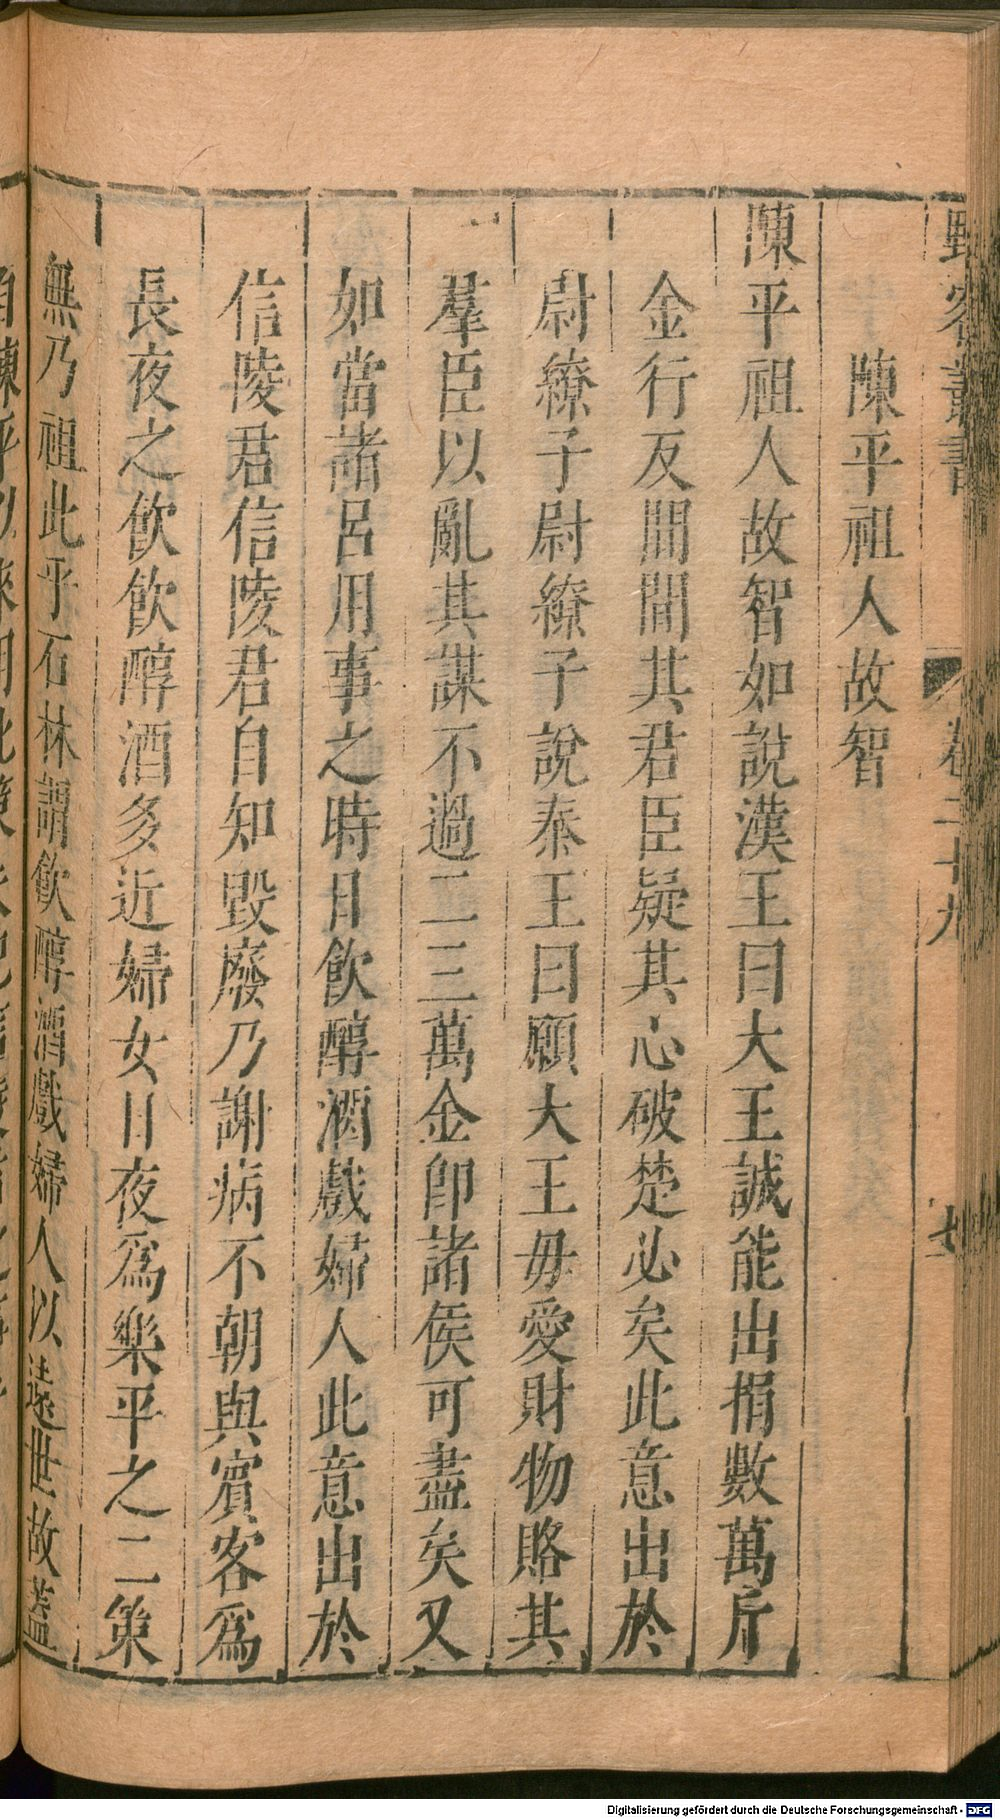 野客叢書 卷二十九 七
陳平祖人故智
陳平祖人故智如說漢王曰大王誠能出捐數萬斤
金行反間間其君臣疑其心破楚必矣此意出於
尉繚子尉繚子說秦王曰願大王毋愛財物賂其
羣臣以亂其謀不過二三萬金卽諸侯可盡矣又
如當諸呂用事之時日飲醇酒戲婦人此意出於
信陵君信陵君自知毀廢乃謝病不朝與賓客爲
長夜之飲飲醇酒多近婦女日夜爲樂平之二策
無乃祖此乎石林謂飲醇酒戲婦人以遠世故蓋
自陳平以來用此策
Digitalisierung gefördert durch die Deutsche Forschungsgemeinschaft - DFG